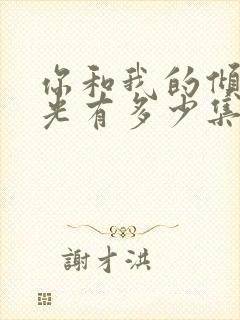 你和我的倾
光有多少集
謝才洪